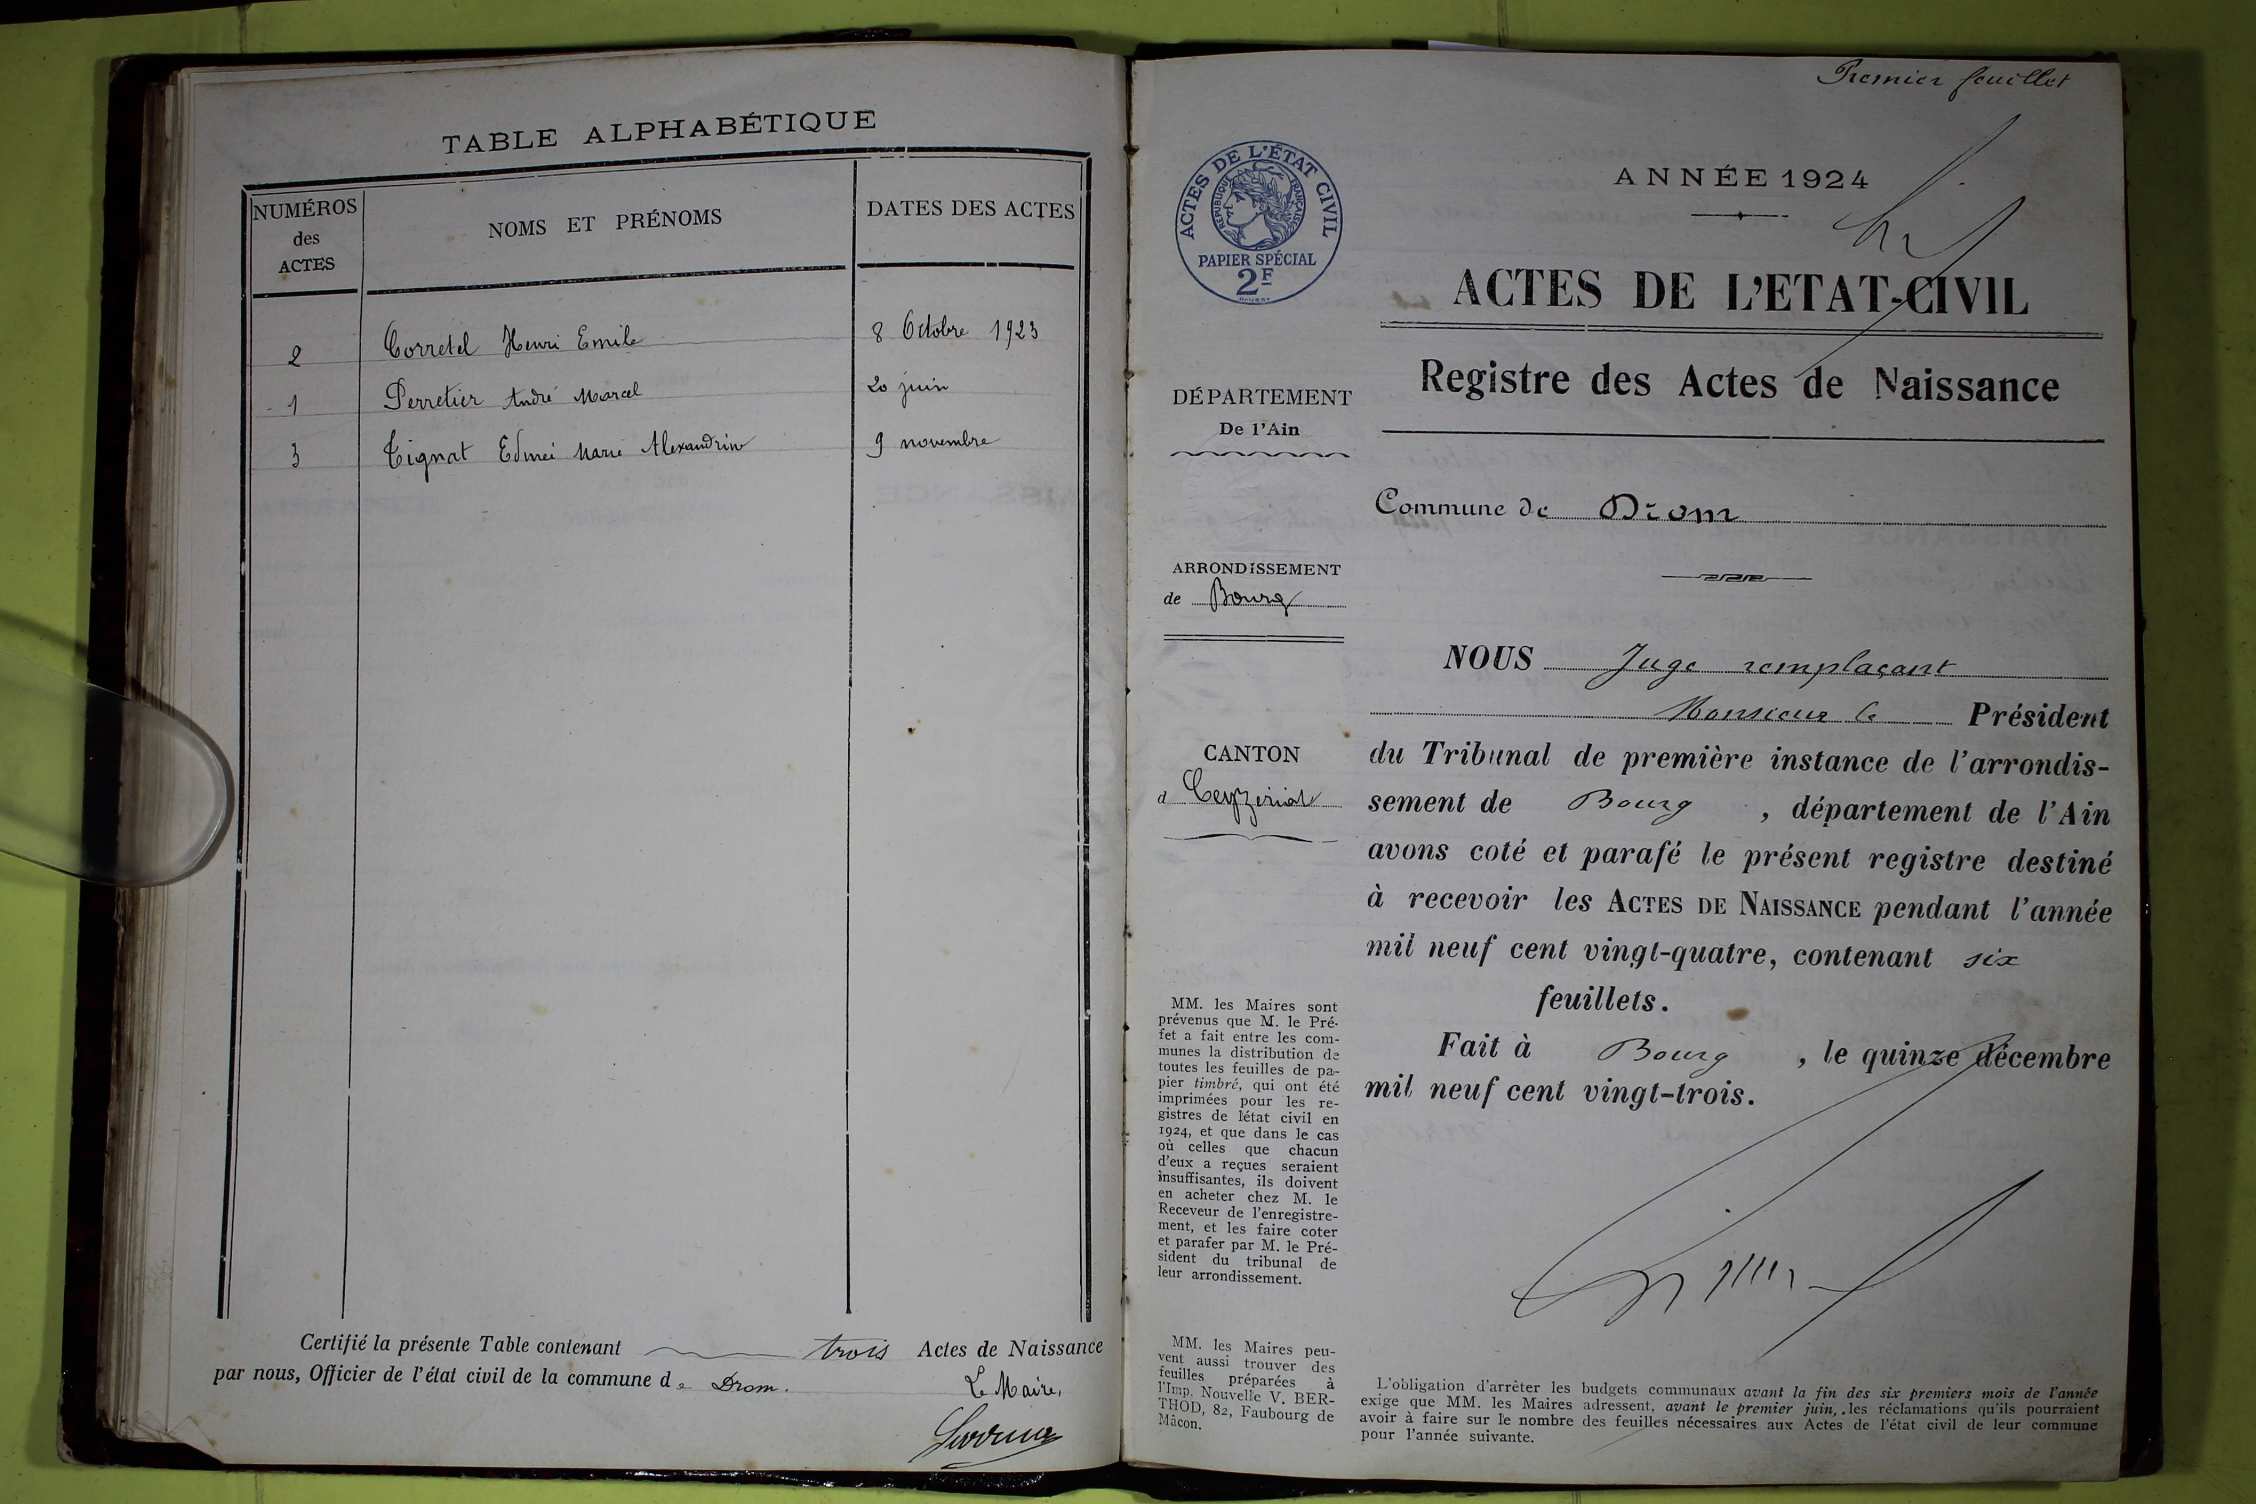 TABLE ALPHABÉTIQUE
NUMÉROS
des
ACTES
NOMS ET PRÉNOMS
DATES DES ACTES
2 Corretel Henri Emile 8 Octobre 1923
1 Perretier André Marcel 20 juin
3 Tignat Edmée Marie Alexandrine 9 novembre
Certifié la présente Table contenant trois Actes de Naissance
par nous, Officier de l'état civil de la commune de Drom.
Le Maire,
Premier feuillet
ACTES DE L'ÉTAT CIVIL
RÉPUBLIQUE FRANÇAISE
PAPIER SPÉCIAL
2F
ANNÉE 1924
ACTES DE L'ETAT-CIVIL
Registre des Actes de Naissance
DÉPARTEMENT
De l'Ain
Commune de Drom
ARRONDISSEMENT
de Bourg
CANTON
d Ceyzériat
NOUS Juge remplaçant
Monsieur le Président
du Tribunal de première instance de l'arrondis-
sement de Bourg, département de l'Ain
avons coté et parafé le présent registre destiné
à recevoir les ACTES DE NAISSANCE pendant l'année
mil neuf cent vingt-quatre, contenant six
feuillets.
Fait à Bourg, le quinze décembre
mil neuf cent vingt-trois.
MM. les Maires sont
prévenus que M. le Pré-
fet a fait entre les com-
munes la distribution de
toutes les feuilles de pa-
pier timbré, qui ont été
imprimées pour les re-
gistres de l'état civil en
1924, et que dans le cas
où celles que chacun
d'eux a reçues seraient
insuffisantes, ils doivent
en acheter chez M. le
Receveur de l'enregistre-
ment, et les faire coter
et parafer par M. le Pré-
sident du tribunal de
leur arrondissement.
MM. les Maires peu-
vent aussi trouver des
feuilles préparées à
l'Imp. Nouvelle V. BER-
THOD, 82, Faubourg de
Mâcon.
L'obligation d'arrêter les budgets communaux avant la fin des six premiers mois de l'année
exige que MM. les Maires adressent, avant le premier juin, les réclamations qu'ils pourraient
avoir à faire sur le nombre des feuilles nécessaires aux Actes de l'état civil de leur commune
pour l'année suivante.